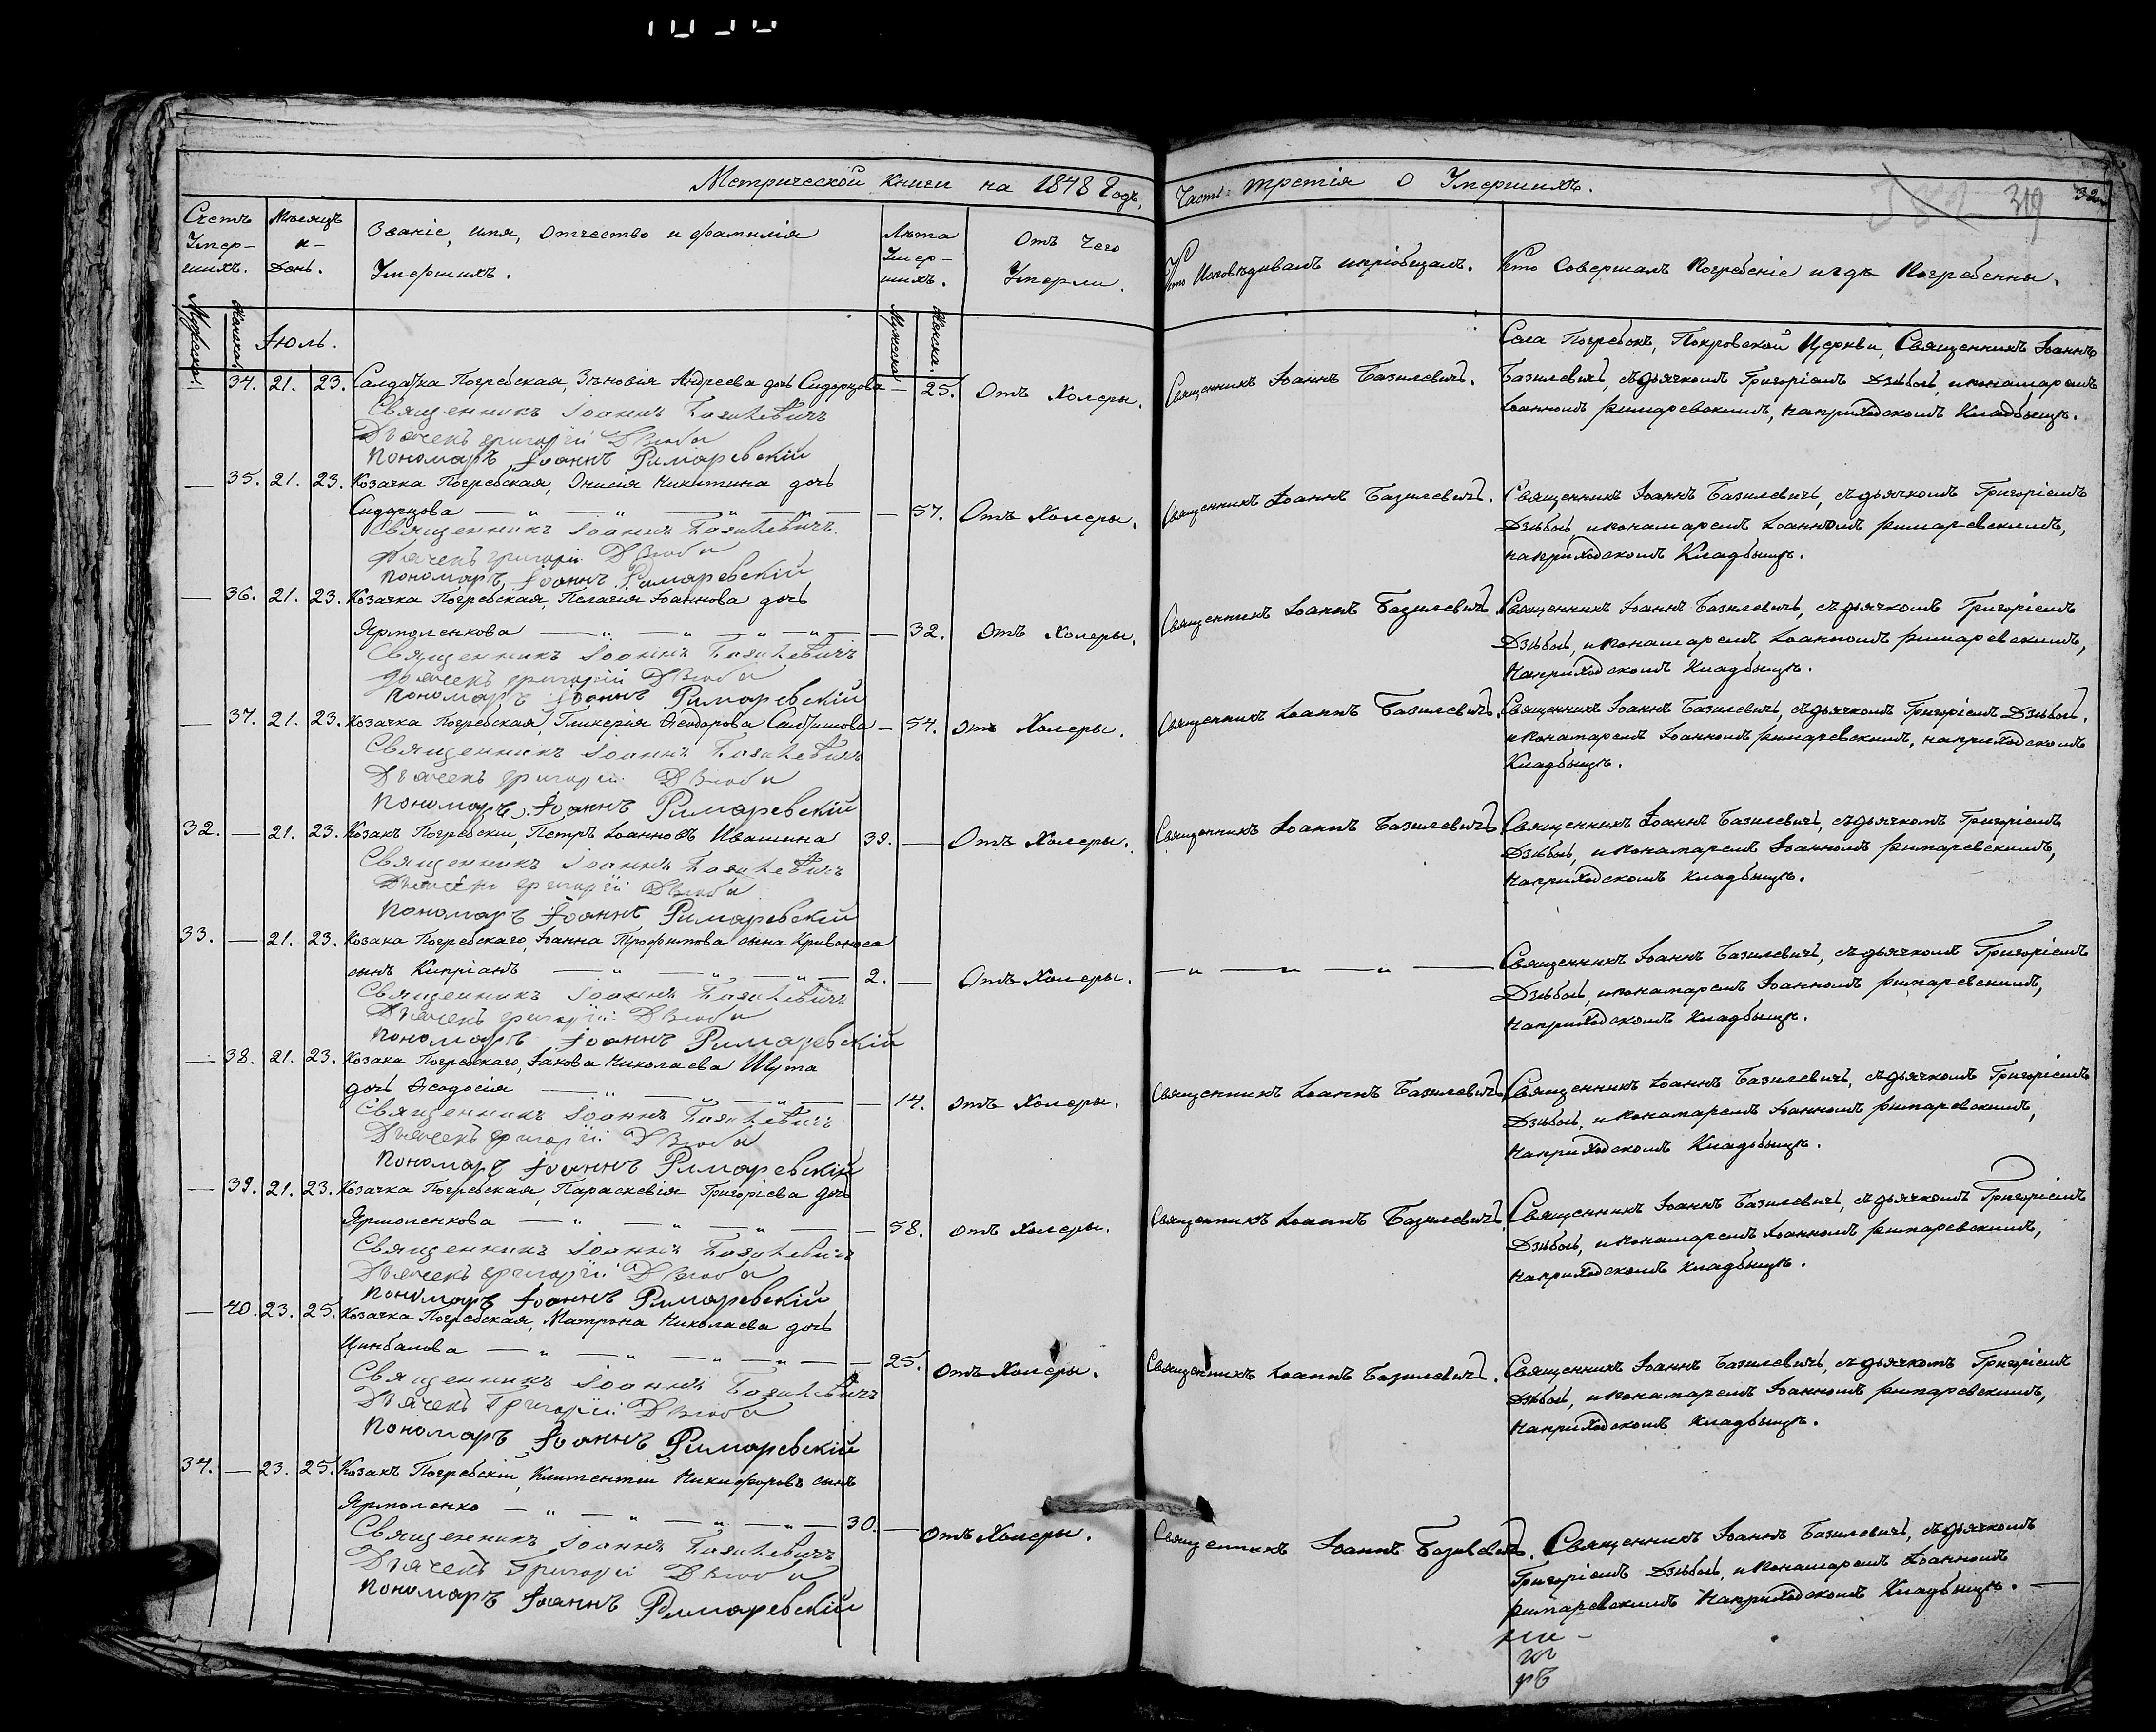 Метрической книги на 1848 Годъ,
Часть третія о Умершихъ.
319
Счетъ Умер-шихъ.
Мѣсяцъ и День.
Званіе, имя, отчество и фамилія Умершихъ.
Лѣта Умер-шихъ.
Отъ чего Умерли.
Кто Исповѣдивалъ и пріобщалъ.
Кто Совершалъ Погребеніе и гдѣ Погребенны.
Мужеска. Женска. Іюль. Мужеска. Женска.
Села Погребокъ, Покровской Церкви, Священникъ Іоаннъ
— 34. 21. 23. Салдатка Погребская, Зѣновія Андреева дочь Сидорцова — 25. Отъ Холеры. Священникъ Іоаннъ Базилевичъ. Базилевичъ, съ дьячкомъ Григоріемъ Дзюбой, и понамаремъ
Священникъ Іоаннъ Базилевичъ Іоанномъ Римаревскимъ, на приходскомъ Кладбыще.
Дьячекъ Григорій Дзюба
Пономаръ Іоаннъ Римаревскій
— 35. 21. 23. Козачка Погребская, Онисія Никитина дочь Священникъ Іоаннъ Базилевичъ, съ дьячкомъ Григоріемъ
Сидорцова — „ — „ — „ — „ — — 57. Отъ Холеры. Священникъ Іоаннъ Базилевичъ. Дзюбой, и понамаремъ Іоанномъ Римаревскимъ,
Священникъ Іоаннъ Базилевичъ. на приходскомъ Кладбыще.
Дьячекъ Григорій Дзюба
Пономаръ, Іоаннъ Римаревскій
— 36. 21. 23. Козачка Погребская, Пелагія Іоаннова дочь Священникъ Іоаннъ Базилевичъ, съ дьячкомъ Григоріемъ
Ярмоленкова — „ — „ — „ — „ — — 32. Отъ Холеры. Священникъ Іоаннъ Базилевичъ. Дзюбой, и понамаремъ Іоанномъ Римаревскимъ,
Священникъ Іоаннъ Базилевичъ На приходскомъ Кладбыще.
Дьячекъ Григорій Дзюба
Пономаръ Іоаннъ Римаревскій
— 37. 21. 23. Козачка Погребская, Гликерія Ѳеодорова — 54. Отъ Холеры. Священникъ Іоаннъ Базилевичъ. Священникъ Іоаннъ Базилевичъ, съ дьячкомъ Григоріемъ Дзюбой,
Священникъ Іоаннъ Базилевичъ и понамаремъ Іоанномъ Римаревскимъ, на приходскомъ
Дьячекъ Григорій Дзюба Кладбыще.
Пономаръ, Іоаннъ Римаревскій
32. — 21. 23. Козакъ Погребскій, Петръ Іоанновъ Ивашина 39. — Отъ Холеры. Священникъ Іоаннъ Базилевичъ. Священникъ Іоаннъ Базилевичъ, съ дьячкомъ Григоріемъ
Священникъ Іоаннъ Базилевичъ Дзюбой, и понамаремъ Іоанномъ Римаревскимъ,
Дьячекъ Григорій Дзюба На приходскомъ кладбыще.
Пономаръ Іоаннъ Римаревскій
33. — 21. 23. Козака Погребскаго, Іоанна Трофимова сына Кривоноса Священникъ Іоаннъ Базилевичъ, съ дьячкомъ Григоріемъ
сынъ Кипріанъ — „ — „ — „ — 2. — Отъ Холеры. — „ — „ — „ — Дзюбой, и понамаремъ Іоанномъ Римаревскимъ,
Священникъ Іоаннъ Базилевичъ На приходскомъ Кладбыще.
Дьячекъ Григорій Дзюба
Пономаръ Іоаннъ Римаревскій
— 38. 21. 23. Козака Погребскаго, Іакова Николаева Шута Священникъ Іоаннъ Базилевичъ, съ дьячкомъ Григоріемъ
дочь Ѳеодосія — „ — „ — „ — — 14. Отъ Холеры. Священникъ Іоаннъ Базилевичъ. Дзюбой, и понамаремъ Іоанномъ Римаревскимъ,
Священникъ Іоаннъ Базилевичъ На приходскомъ Кладбыще.
Дьячекъ Григорій Дзюба
Пономаръ Іоаннъ Римаревскій
— 39. 21. 23. Козачка Погребская, Параскевія Григоріева дочь Священникъ Іоаннъ Базилевичъ, съ дьячкомъ Григоріемъ
Ярмоленкова — „ — „ — „ — — 58. Отъ Холеры. Священникъ Іоаннъ Базилевичъ. Дзюбой, и понамаремъ Іоанномъ Римаревскимъ,
Священникъ Іоаннъ Базилевичъ На приходскомъ кладбыще.
Дьячекъ Григорій Дзюба
Пономаръ Іоаннъ Римаревскій
— 40. 23. 25. Козачка Погребская, Матрона Николаева дочь Священникъ Іоаннъ Базилевичъ, съ дьячкомъ Григоріемъ
Цинбалова — „ — „ — „ — „ — — 25. Отъ Холеры. Священникъ Іоаннъ Базилевичъ. Дзюбой, и понамаремъ Іоанномъ Римаревскимъ,
Священникъ Іоаннъ Базилевичъ На приходскомъ кладбыще.
Дьячекъ Григорій Дзюба
Пономаръ Іоаннъ Римаревскій
34. — 23. 25. Козакъ Погребскій, Климентій Никифоровъ сынъ
Ярмоленко — „ — „ — „ — „ — 30. — Отъ Холеры. Священникъ Іоаннъ Базилевичъ. Священникъ Іоаннъ Базилевичъ, съ дьячкомъ
Священникъ Іоаннъ Базилевичъ Григоріемъ Дзюбой, и понамаремъ Іоанномъ
Дьячекъ Григорій Дзюба Римаревскимъ На приходскомъ Кладбыще. —
Пономаръ Іоаннъ Римаревскій